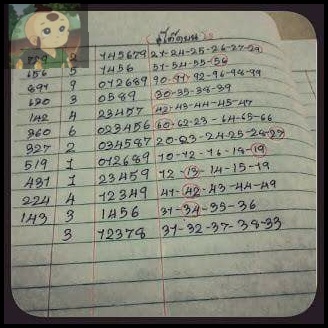 คู่โต๊ดบน
759 2 145679 21-24-25-26-27-29
656 5 1456 51-54-55-56
891 9 012689 90-91-92-96-98-99
620 3 0589 30-35-38-39
142 4 23457 42-43-44-45-47
360 6 023456 60-62-63-64-65-66
327 2 034587 20-23-24-25-28-27
519 1 012689 10-12-16-18-19
431 1 23459 12-13-14-15-19
224 4 12349 41-42-43-44-49
143 3 1456 31-34-35-36
3 12378 31-32-37-38-33